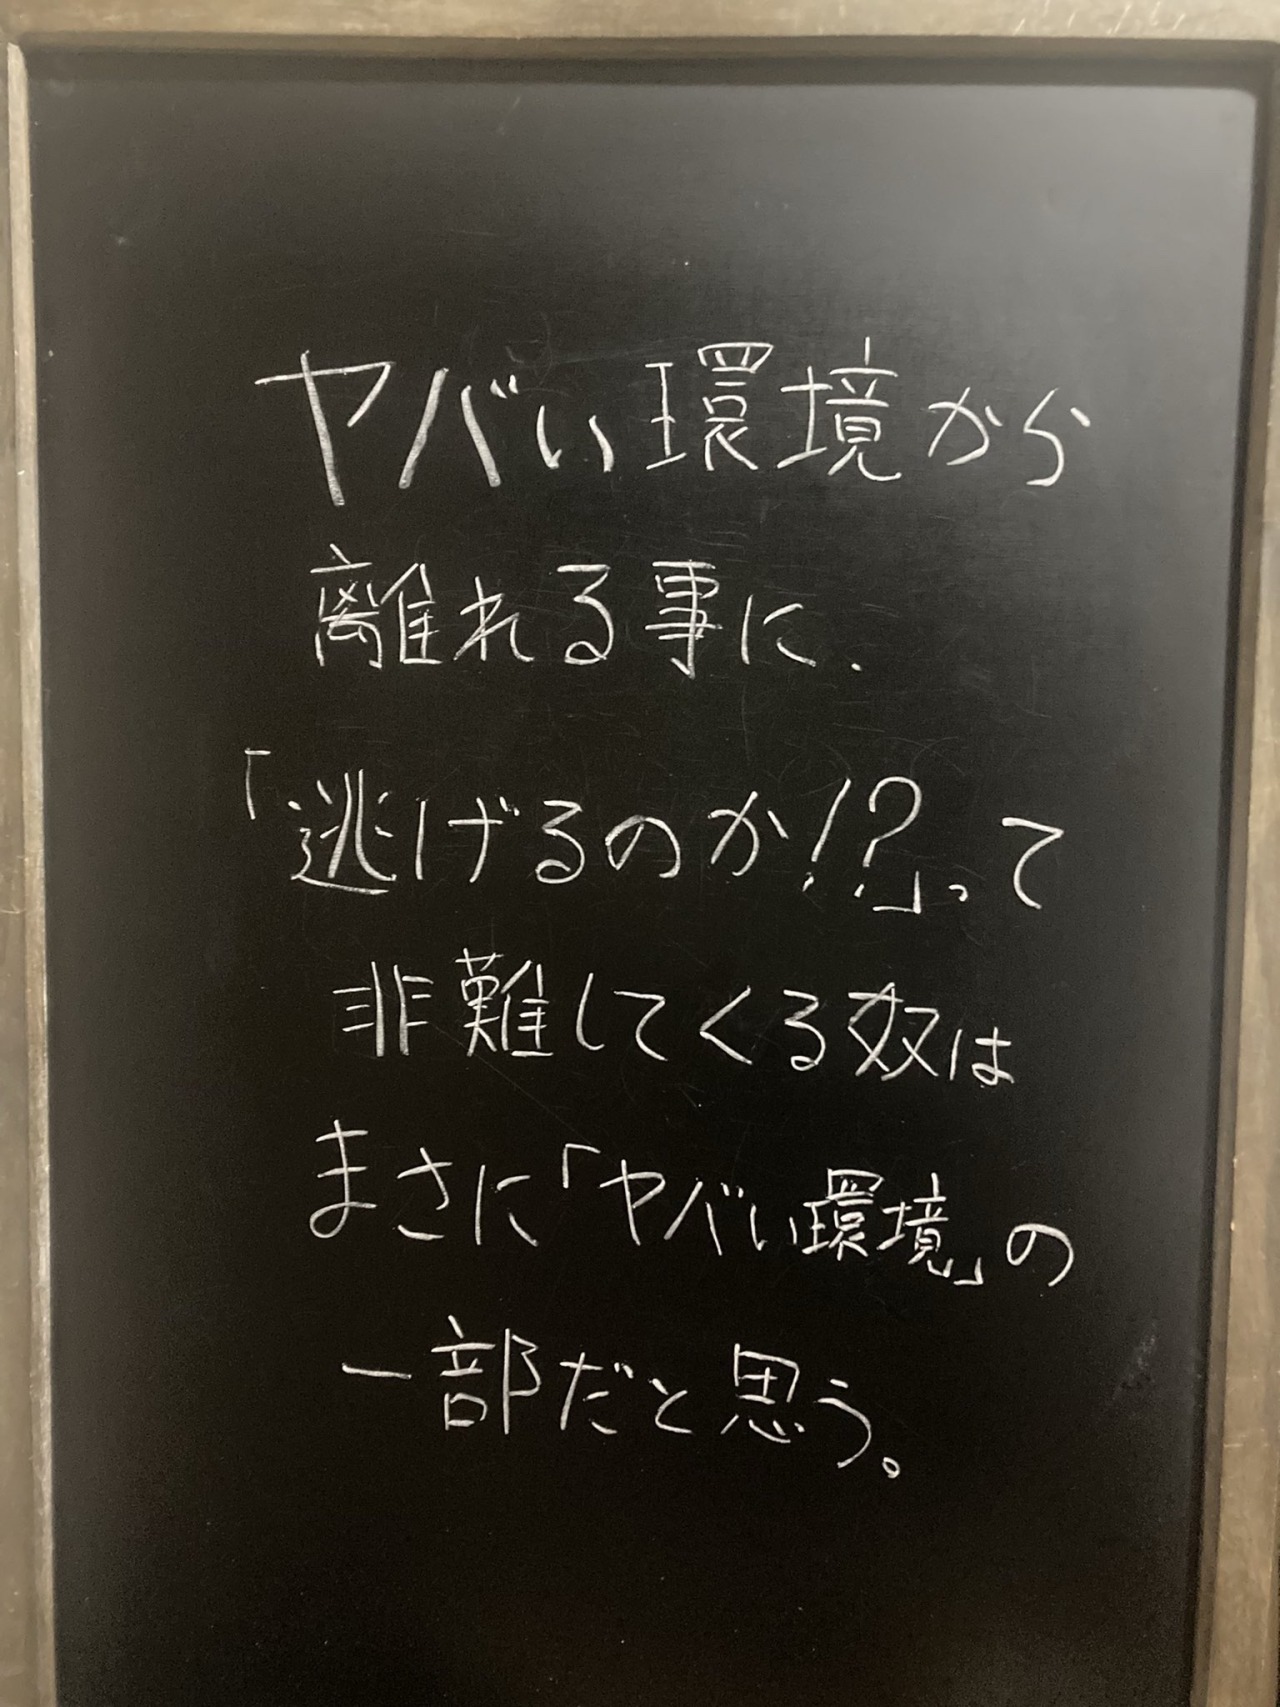 ヤバい環境から
離れる事に、
「逃げるのか!?」って
非難してくる奴は
まさに「ヤバい環境」の
一部だと思う。